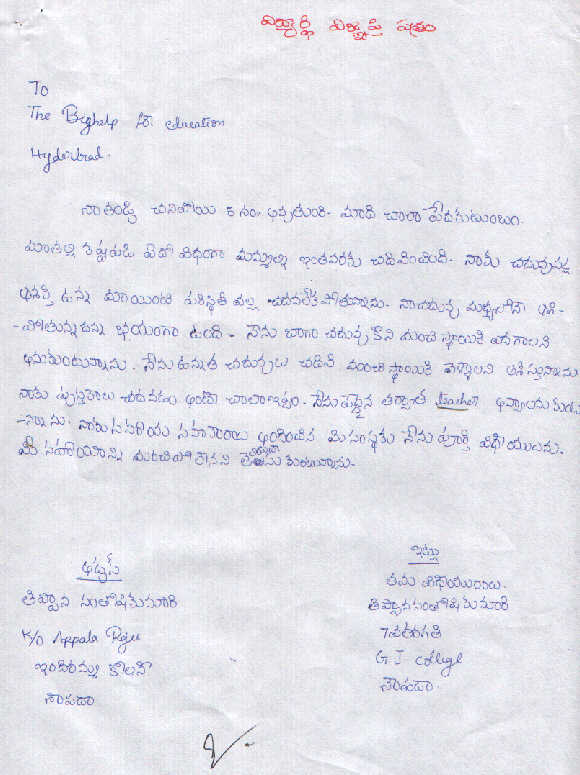 విద్యార్థి విజ్ఞప్తి పత్రం
To
The Bighelp for education
Hyderabad.
నా తండ్రి చనిపోయి 6 సం. అవుతుంది. మాది చాలా పేదకుటుంబం.
మాతల్లి కష్టపడి ఏదో విధంగా మమ్మల్ని ఇంతవరకు చదివించింది. నాకు చదువుపట్ల
ఆసక్తి ఉన్న మాయింటి పరిస్థితి వల్ల చదవలేకపోతున్నాను. నాచదువు మధ్యలోనే ఆగి-
-పోతున్నదన్న భయంగా ఉంది. నేను బాగా చదువుకొని మంచి స్థాయికి ఎదగాలని
అనుకుంటున్నాను. నేను ఉన్నత చదువులు చదివి మంచిస్థాయికి వెళ్ళాలని ఆశిస్తున్నాను
నాకు పుస్తకాలు చదవడం అంటే చాలా ఇష్టం. నేను పెద్దైన తర్వాత Teacher అవ్వాలనుకుంటు
-న్నాను. నాకు సహాయ సహకారాలు అందించిన మీ సంస్థకు నేను పూర్తి విధేయులను.
మీ సహాయాన్ని మరచిపోలేనని తెలియజేసుకుంటున్నాను.
అడ్రస్
తిప్పాన సంతోషికుమారి
K/o Appala Raju
ఇందిరమ్మ కాలనీ
సొంపురం
ఇట్లు
తమ విధేయురాలు.
తిప్పానసంతోషికుమారి
7వతరగతి
G J college